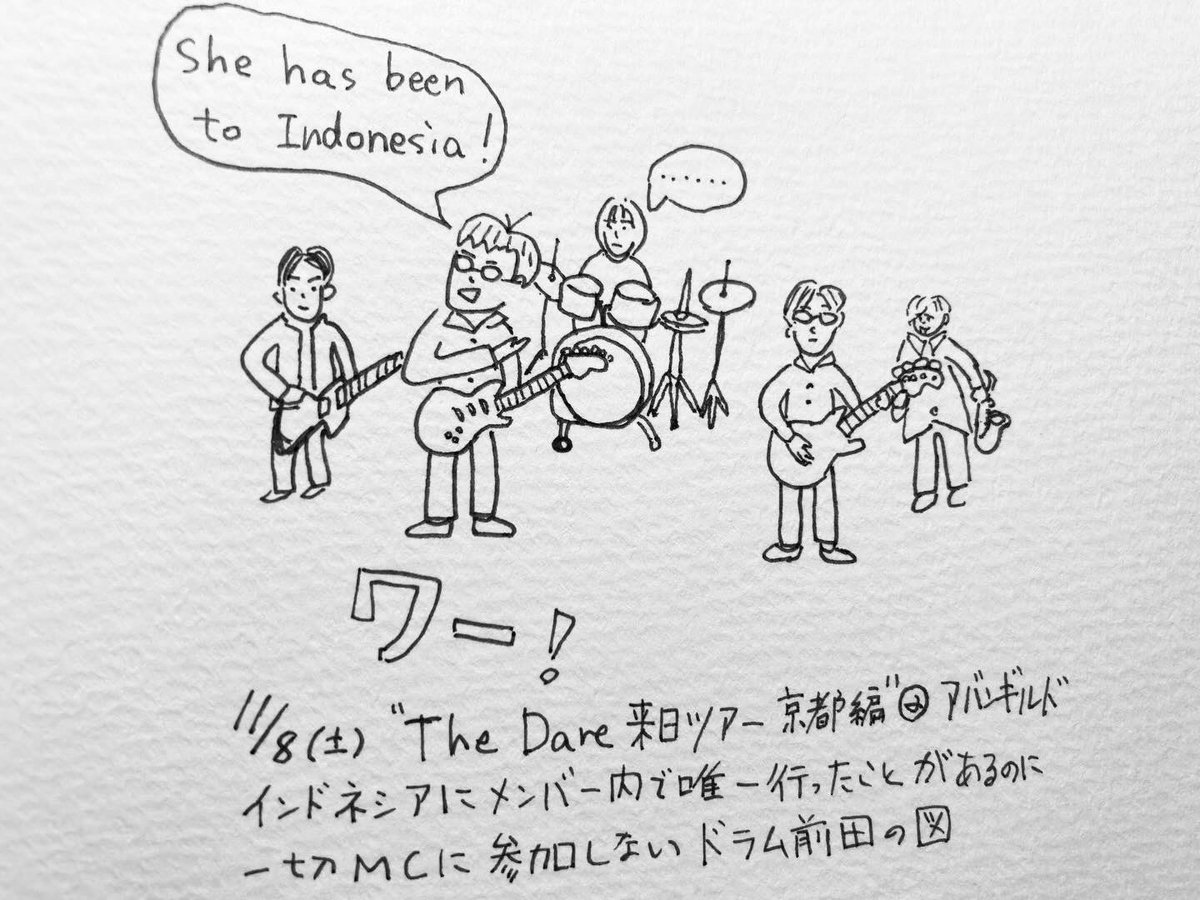 She has been
to Indonesia!
……
ワー!
11/8(土) "The Dare 来日ツアー 京都編"@アバンギルド
インドネシアにメンバー内で唯一行ったことがあるのに
一切MCに参加しないドラム前田の図